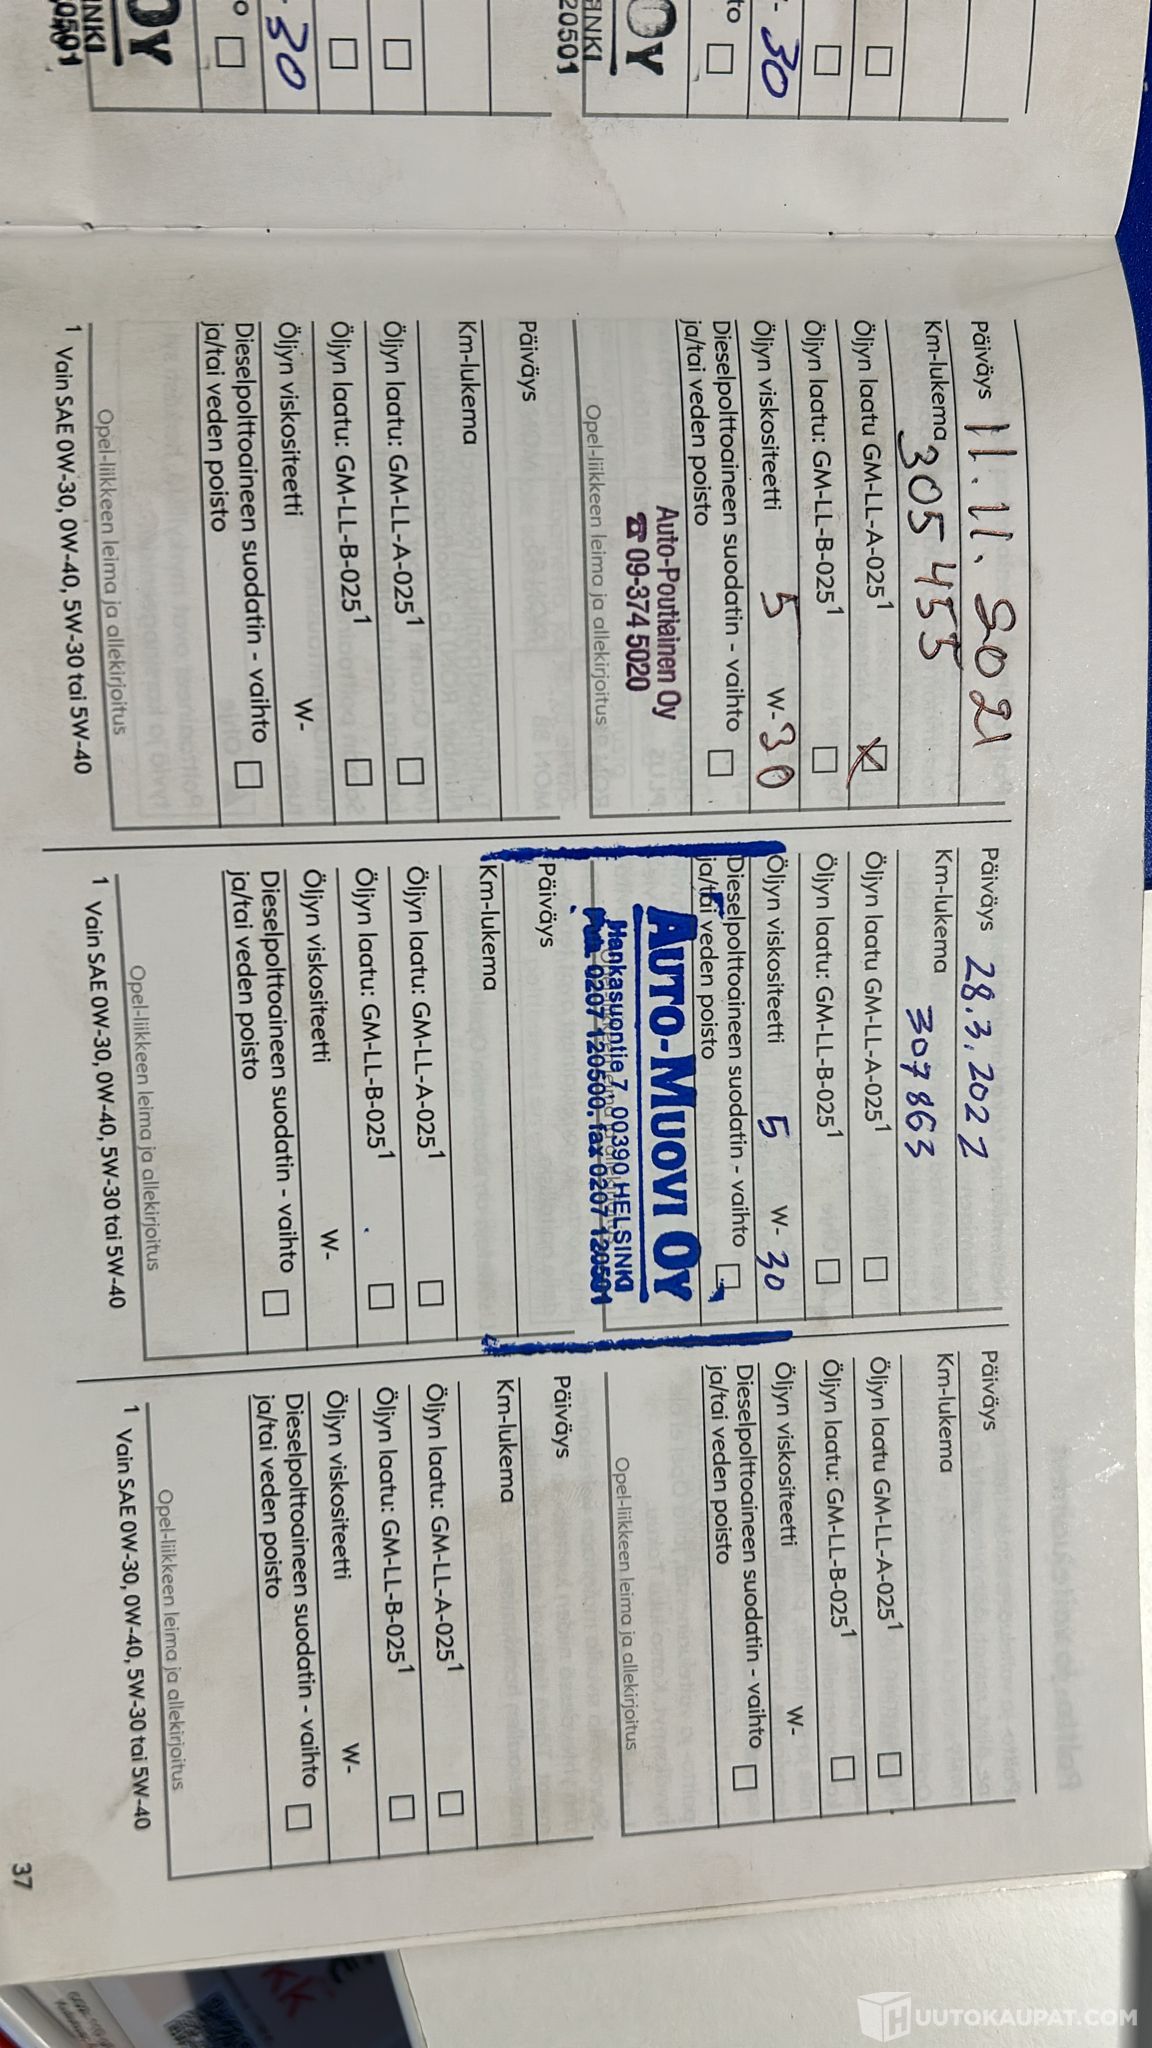 - 30
to
OY
INKI
20501
- 30
o
OY
INKI
0501
Päiväys 11.11.2021
Km-lukema 305 455
Öljyn laatu GM-LL-A-025¹ X
Öljyn laatu: GM-LL-B-025¹
Öljyn viskositeetti 5 W-30
Dieselpolttoaineen suodatin - vaihto
ja/tai veden poisto
Auto-Poutiainen Oy
☎ 09-374 5020
Opel-liikkeen leima ja allekirjoitus
Päiväys
Km-lukema
Öljyn laatu: GM-LL-A-025¹
Öljyn laatu: GM-LL-B-025¹
Öljyn viskositeetti W-
Dieselpolttoaineen suodatin - vaihto
ja/tai veden poisto
Opel-liikkeen leima ja allekirjoitus
1 Vain SAE 0W-30, 0W-40, 5W-30 tai 5W-40
Päiväys 28.3.2022
Km-lukema 307863
Öljyn laatu GM-LL-A-025¹
Öljyn laatu: GM-LL-B-025¹
Öljyn viskositeetti 5 W-30
Dieselpolttoaineen suodatin - vaihto
ja/tai veden poisto
AUTO-MUOVI OY
Hankasuontie 7, 00390 HELSINKI
Puh. 0207 120500, fax 0207 120501
Päiväys
Km-lukema
Öljyn laatu: GM-LL-A-025¹
Öljyn laatu: GM-LL-B-025¹
Öljyn viskositeetti W-
Dieselpolttoaineen suodatin - vaihto
ja/tai veden poisto
Opel-liikkeen leima ja allekirjoitus
1 Vain SAE 0W-30, 0W-40, 5W-30 tai 5W-40
Päiväys
Km-lukema
Öljyn laatu GM-LL-A-025¹
Öljyn laatu: GM-LL-B-025¹
Öljyn viskositeetti W-
Dieselpolttoaineen suodatin - vaihto
ja/tai veden poisto
Opel-liikkeen leima ja allekirjoitus
Päiväys
Km-lukema
Öljyn laatu: GM-LL-A-025¹
Öljyn laatu: GM-LL-B-025¹
Öljyn viskositeetti W-
Dieselpolttoaineen suodatin - vaihto
ja/tai veden poisto
Opel-liikkeen leima ja allekirjoitus
1 Vain SAE 0W-30, 0W-40, 5W-30 tai 5W-40
37
HUUTOKAUPAT.COM